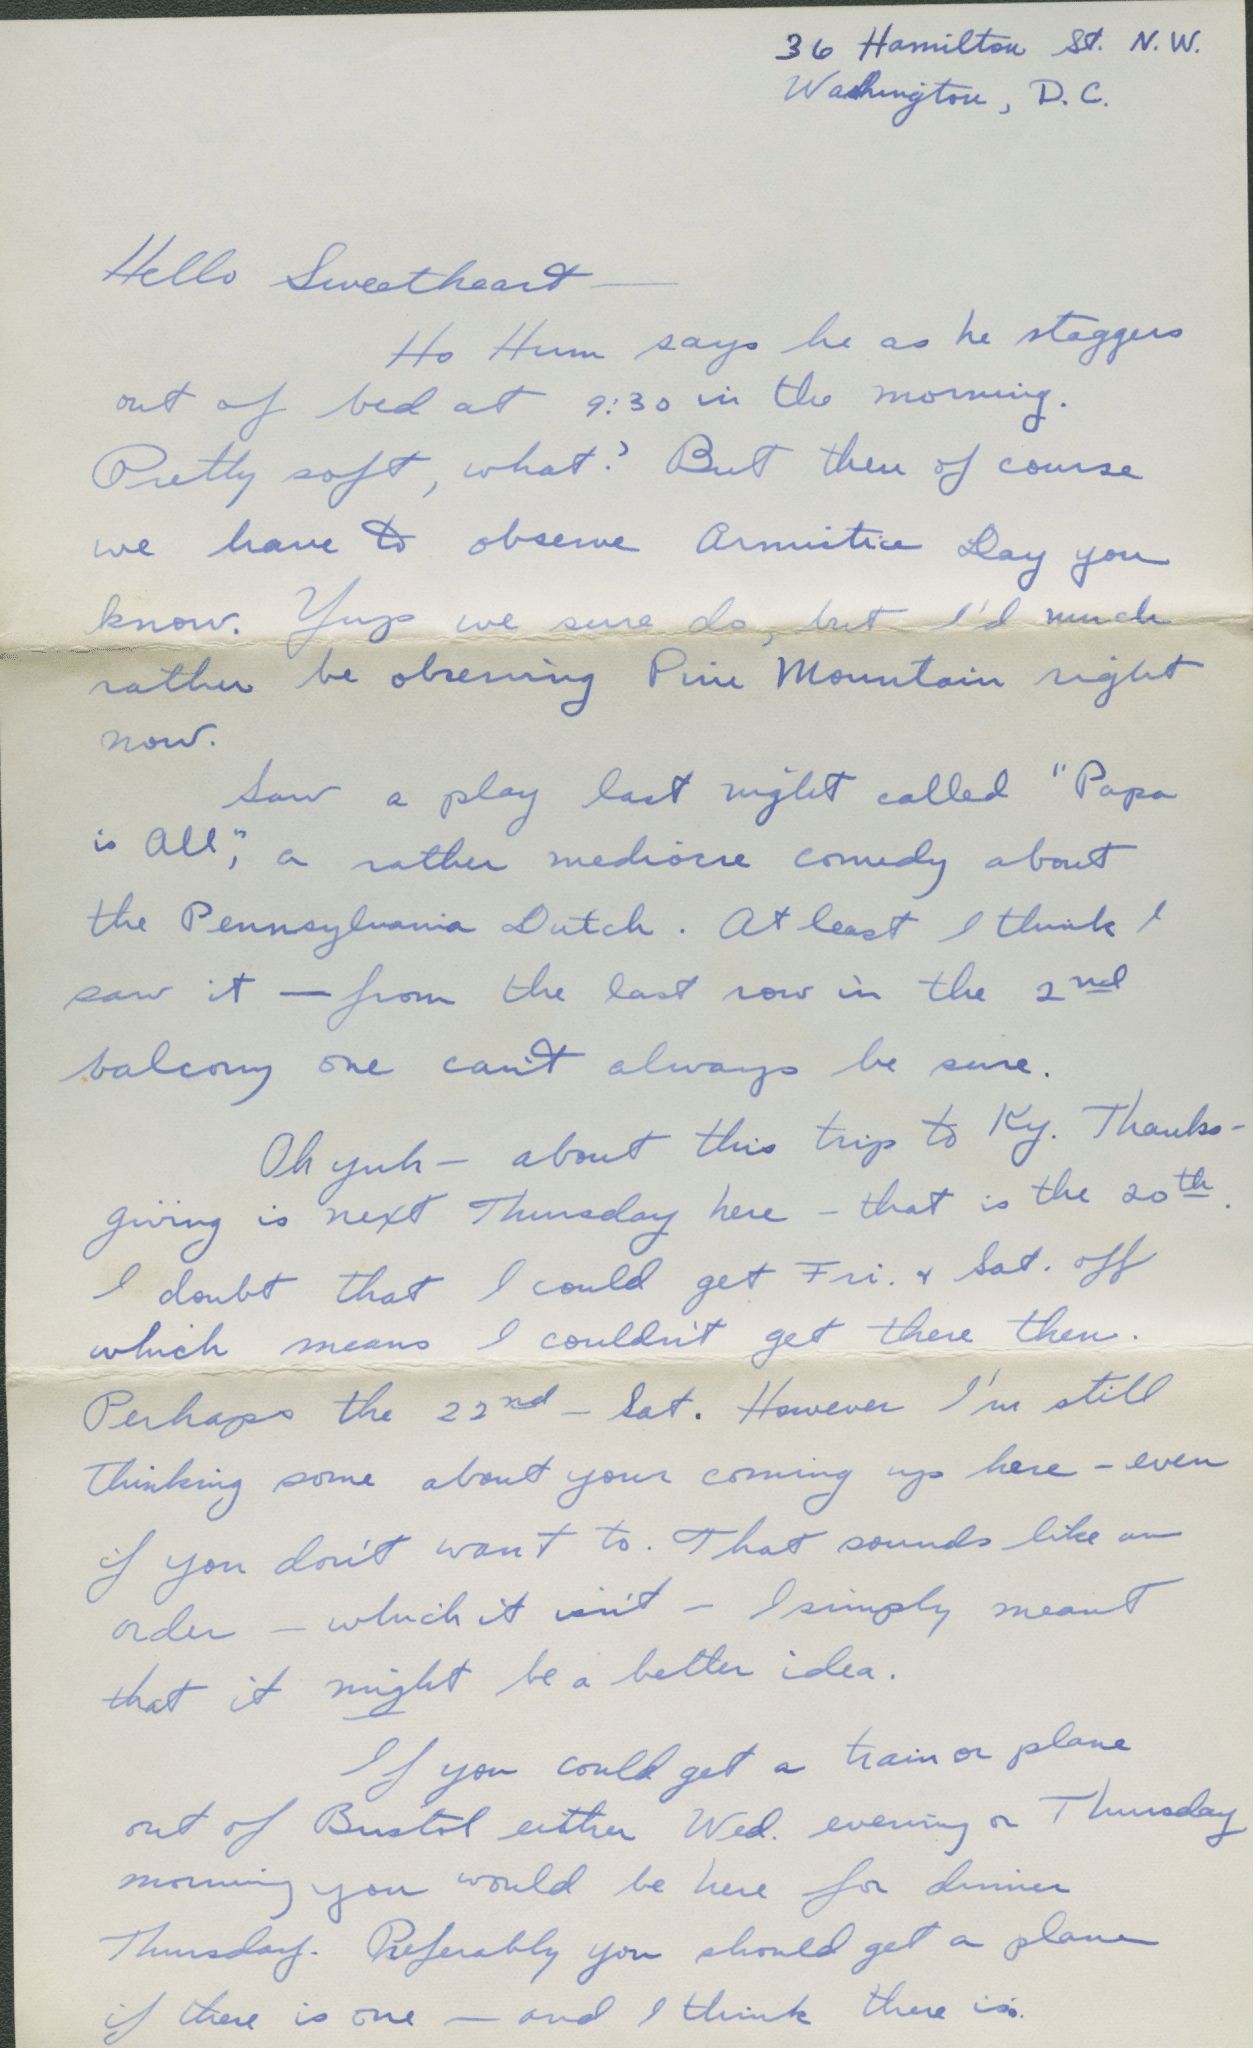 36 Hamilton St. N.W.
Washington, D.C.
Hello Sweetheart —
Ho Hum says he as he staggers
out of bed at 9:30 in the morning.
Pretty soft, what? But then of course
we have to observe Armistice Day you
know. Yup we sure do, but I'd much
rather be observing Pine Mountain right
now.
Saw a play last night called "Papa
is All", a rather mediocre comedy about
the Pennsylvania Dutch. At least I think I
saw it — from the last row in the 2nd
balcony one can't always be sure.
Oh yuh — about this trip to Ky. Thanks-
giving is next Thursday here – that is the 20th.
I doubt that I could get Fri. & Sat. off
which means I couldn't get there then.
Perhaps the 22nd – Sat. However I'm still
thinking some about your coming up here – even
if you don't want to. That sounds like an
order – which it isn't – I simply meant
that it might be a better idea.
If you could get a train or plane
out of Bristol either Wed. evening or Thursday
morning you would be here for dinner
Thursday. Preferably you should get a plane
if there is one — and I think there is.